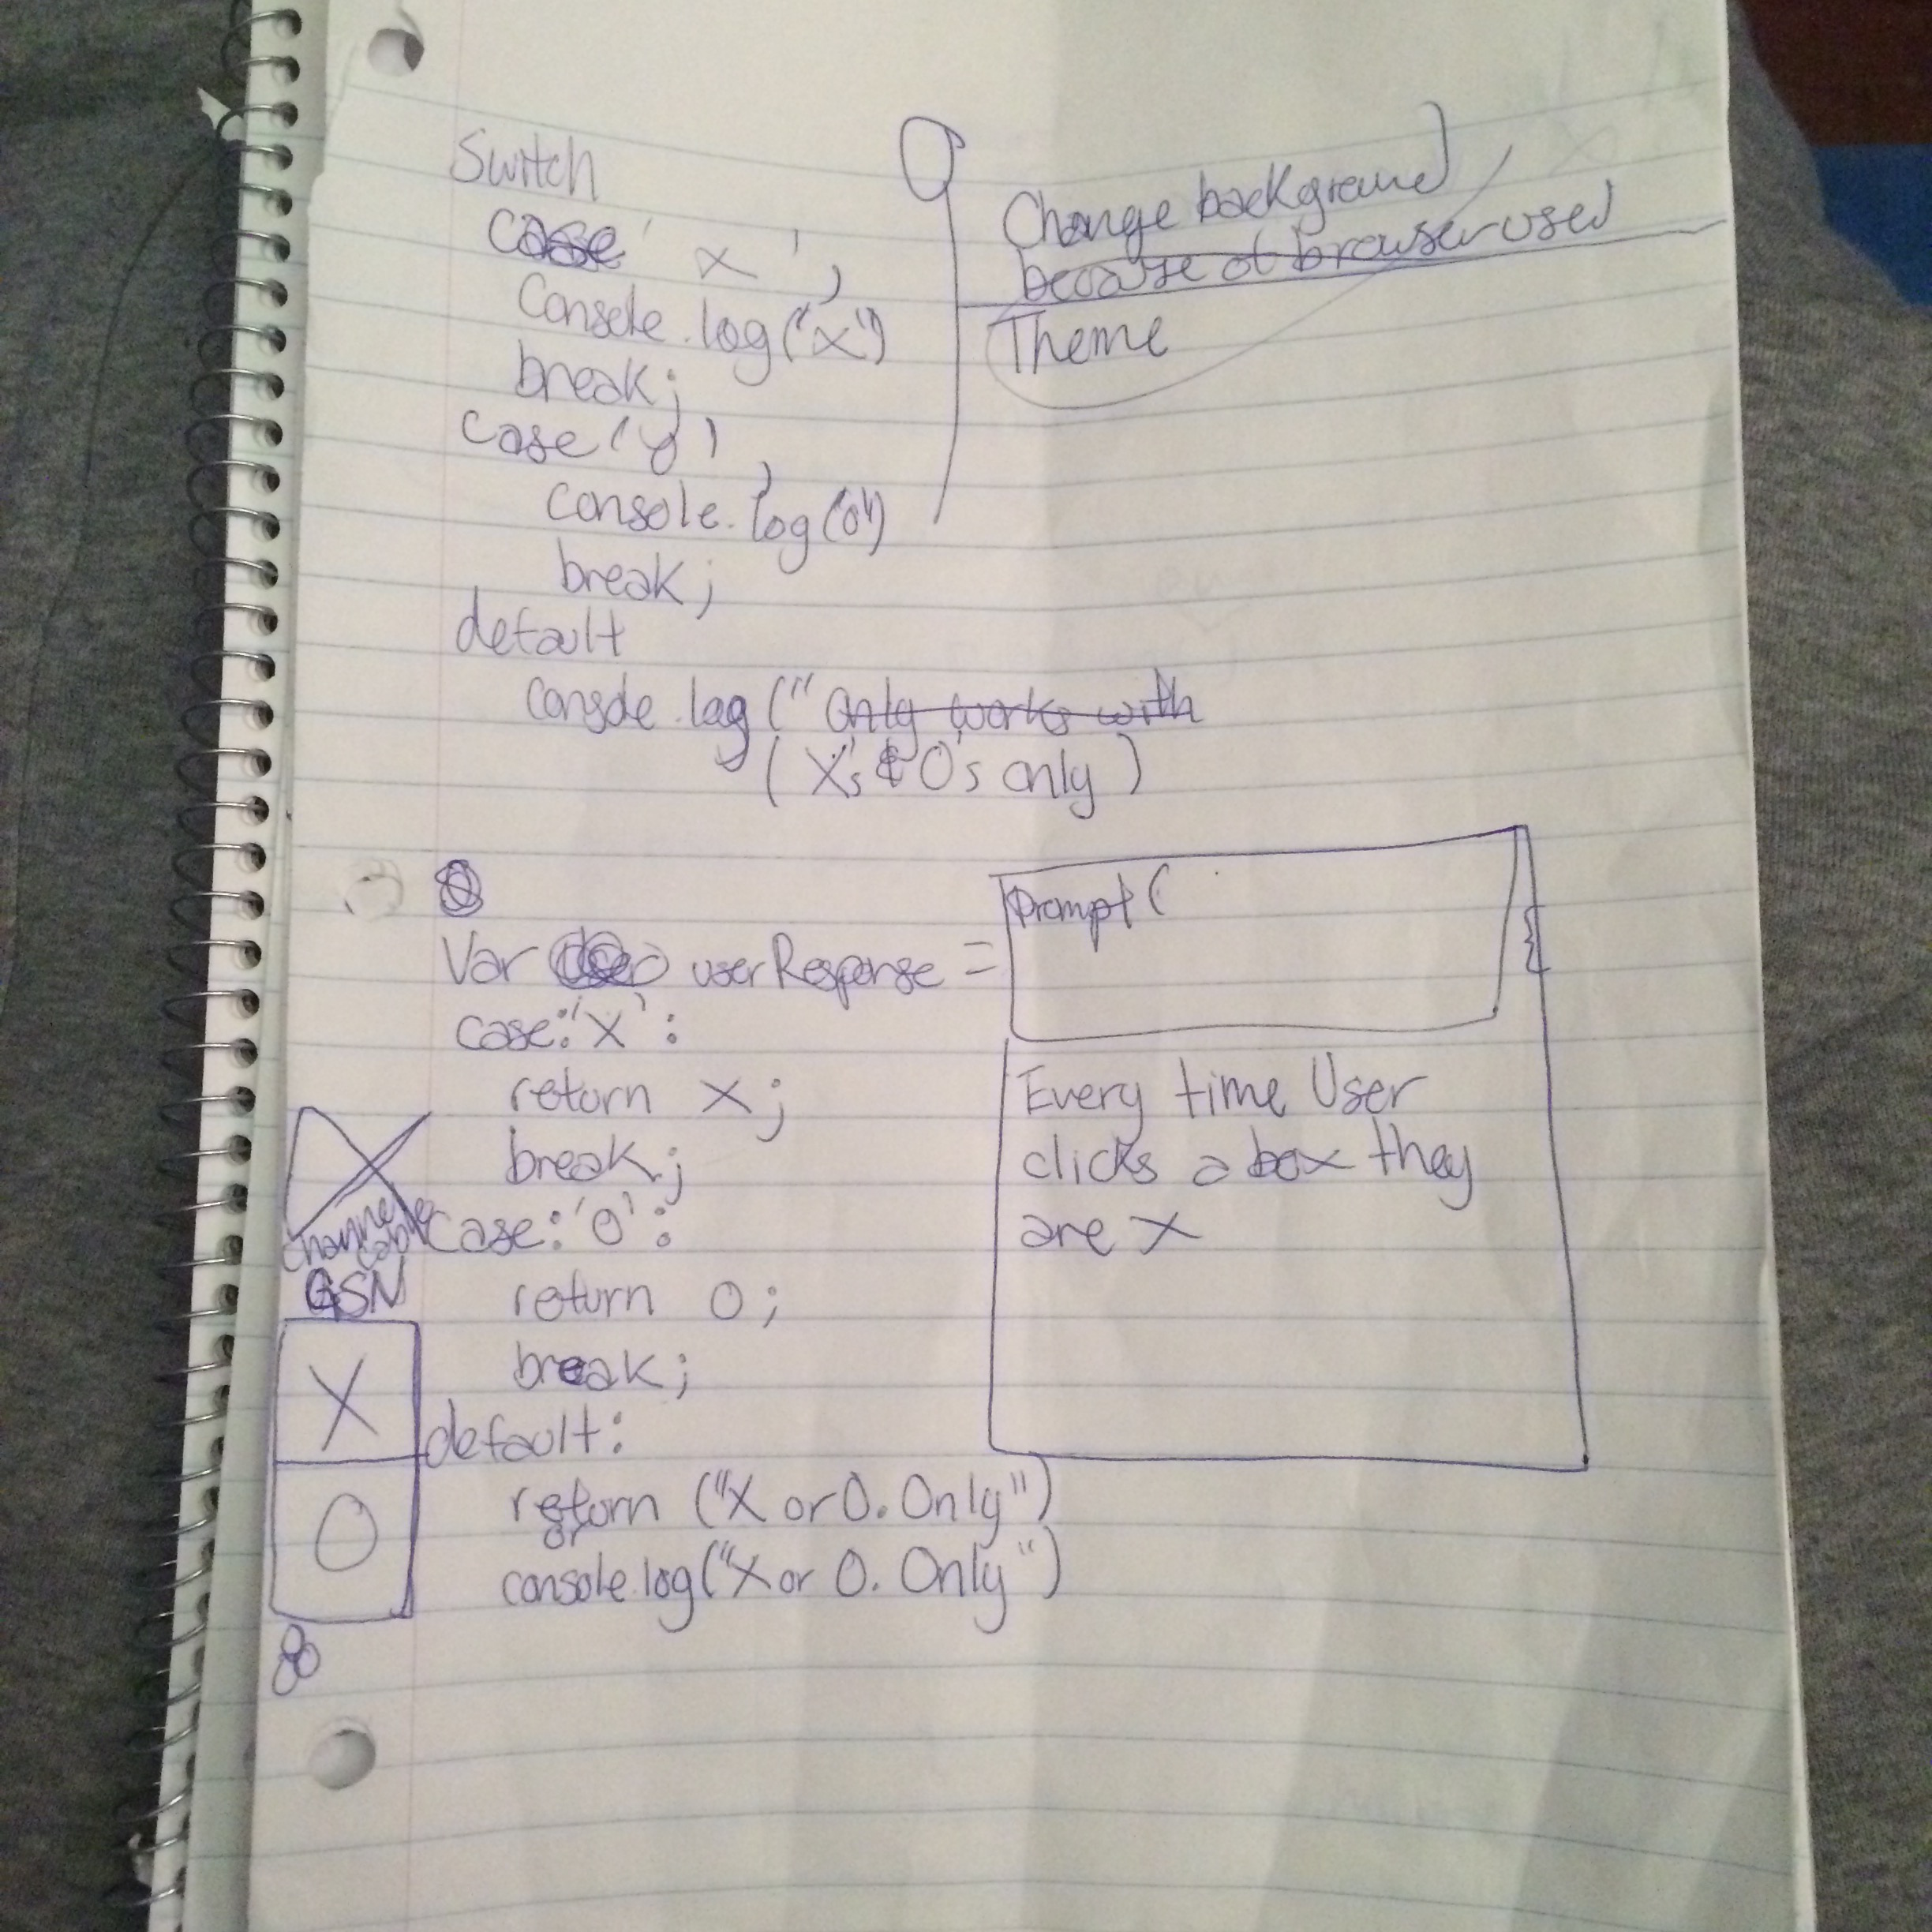 Switch
case 'x';
Console.log("x")
break;
case 'y';
console.log("o")
break;
default
console.log("Only works with
(X's & O's only)
Change background
because of browser used
Theme
Var userResponse =
case:'X':
return X;
break;
case:'O':
return O;
break;
default:
return ("X or O. Only")
or
console.log("X or O. Only")
Prompt (
Every time User
clicks a box they
are X
Channel
cable
GSN
X
O